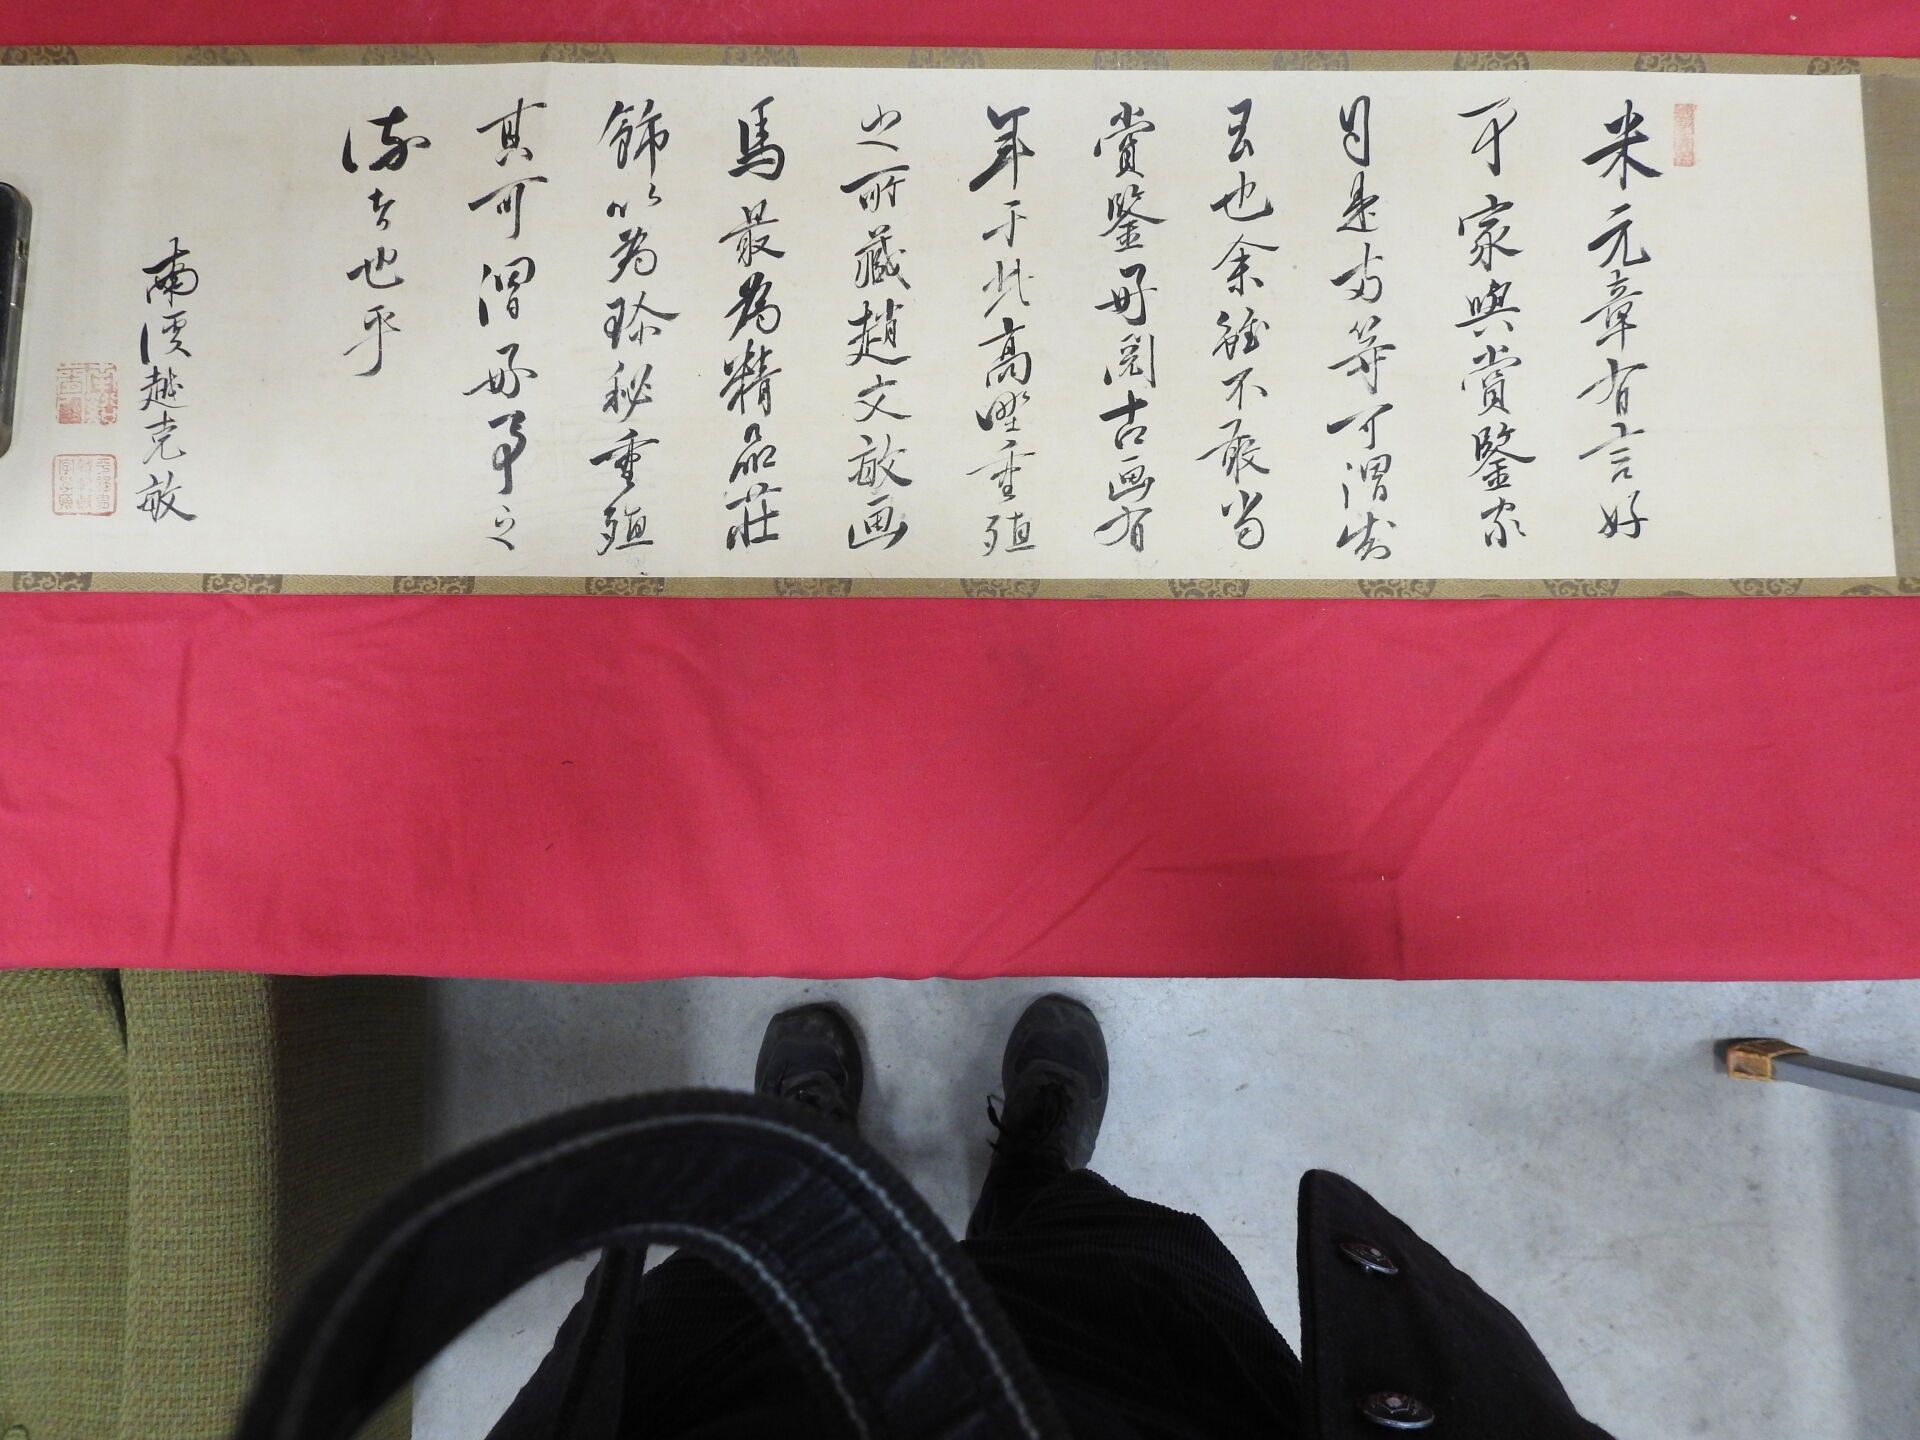 米元章有言好
事家與賞鑒家
自是兩等可謂知
言也余雖不敢當
賞鑒每閲古画有
年于此高野重殖
之所藏趙文敏画
馬最為精品莊
飾以為珍秘重殖
其可謂好事之
流者也乎
南溟越克敏